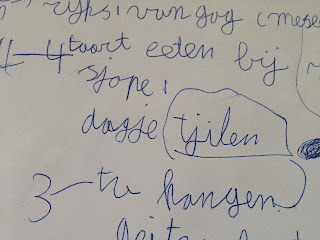 rijks, van gog (mese
4 - taart eeten bij
sjope,
dagje tjilen
3 - tv hangen